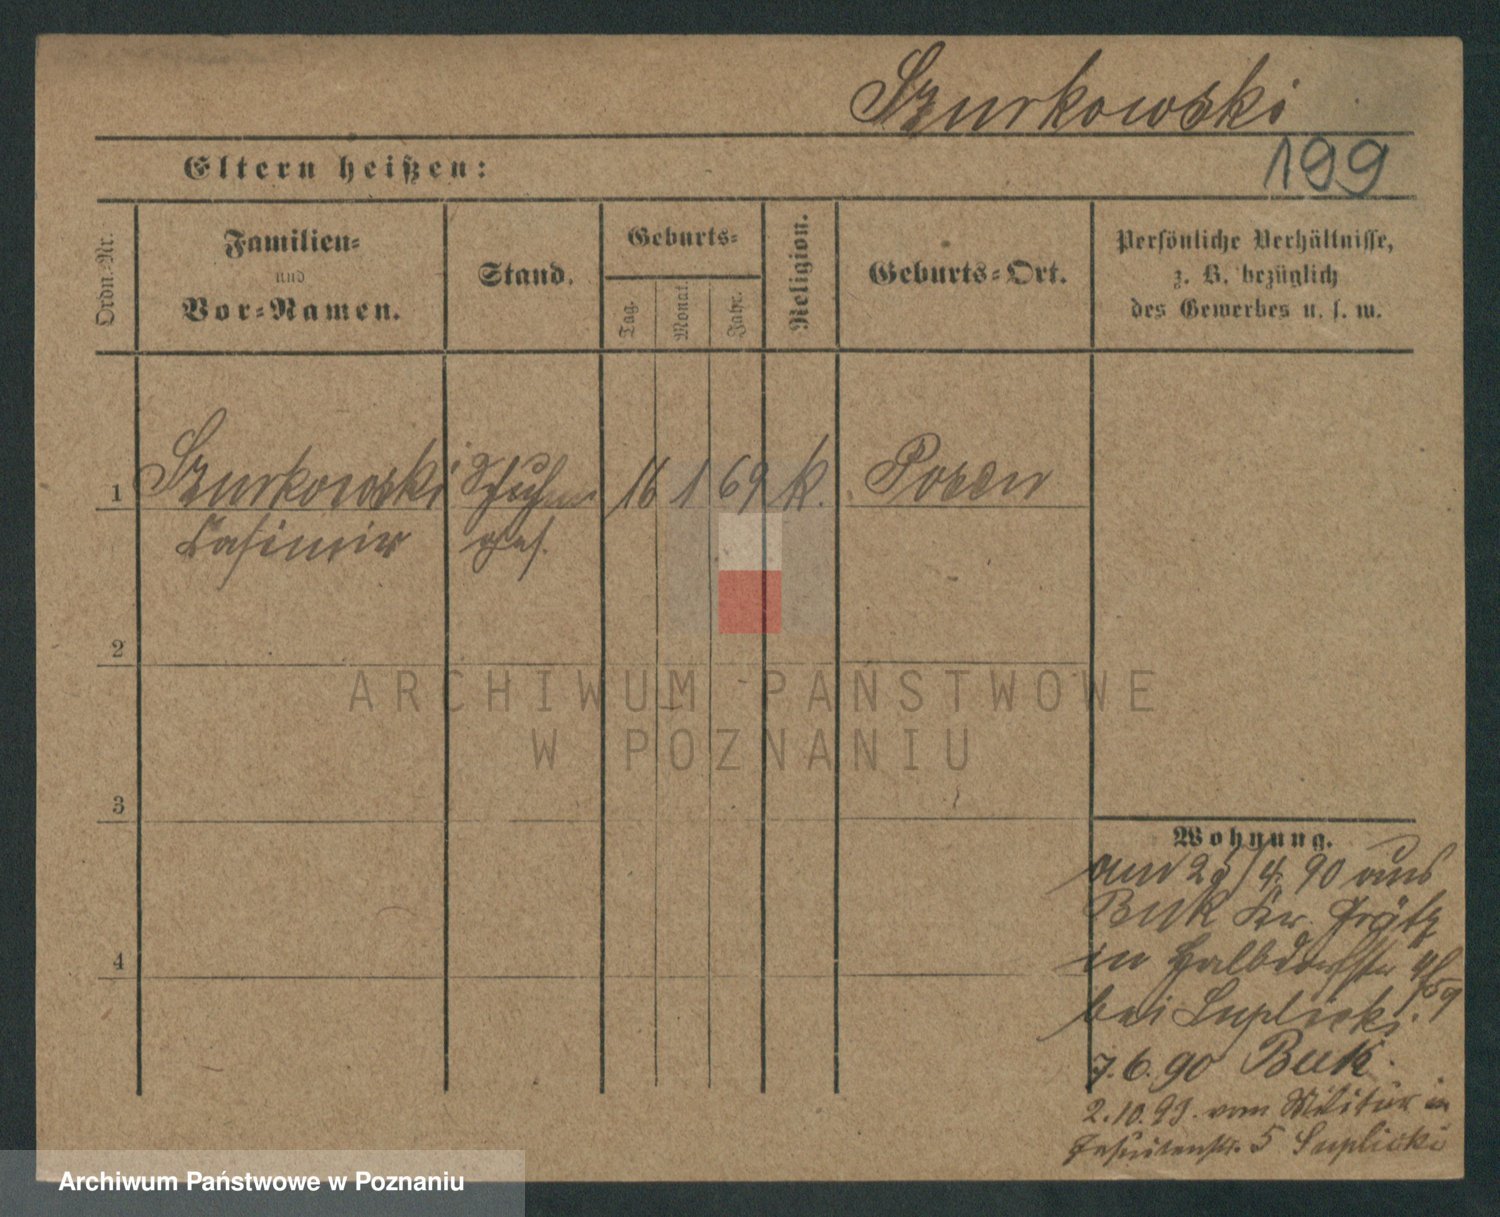 Szurkowski
199
Eltern heißen:
Ordn.-Nr.
Familien-
und
Vor-Namen.
Stand.
Geburts-
Tag.
Monat.
Jahr.
Religion.
Geburts-Ort.
Persönliche Verhältnisse,
z. B. bezüglich
des Gewerbes u. s. w.
1 Szurkowski Schuhm 16 1 69 K. Posen
Casimir ges.
2
3
4
Wohnung.
am 25/4. 90 aus
Buk Kr. Grätz
in Halbdorfstr
bei Suplicki.
7.6.90 Buk.
2.10.93. vom Militär in
Jesuitenstr. 5 Suplicki
ARCHIWUM PAŃSTWOWE
W POZNANIU
Archiwum Państwowe w Poznaniu